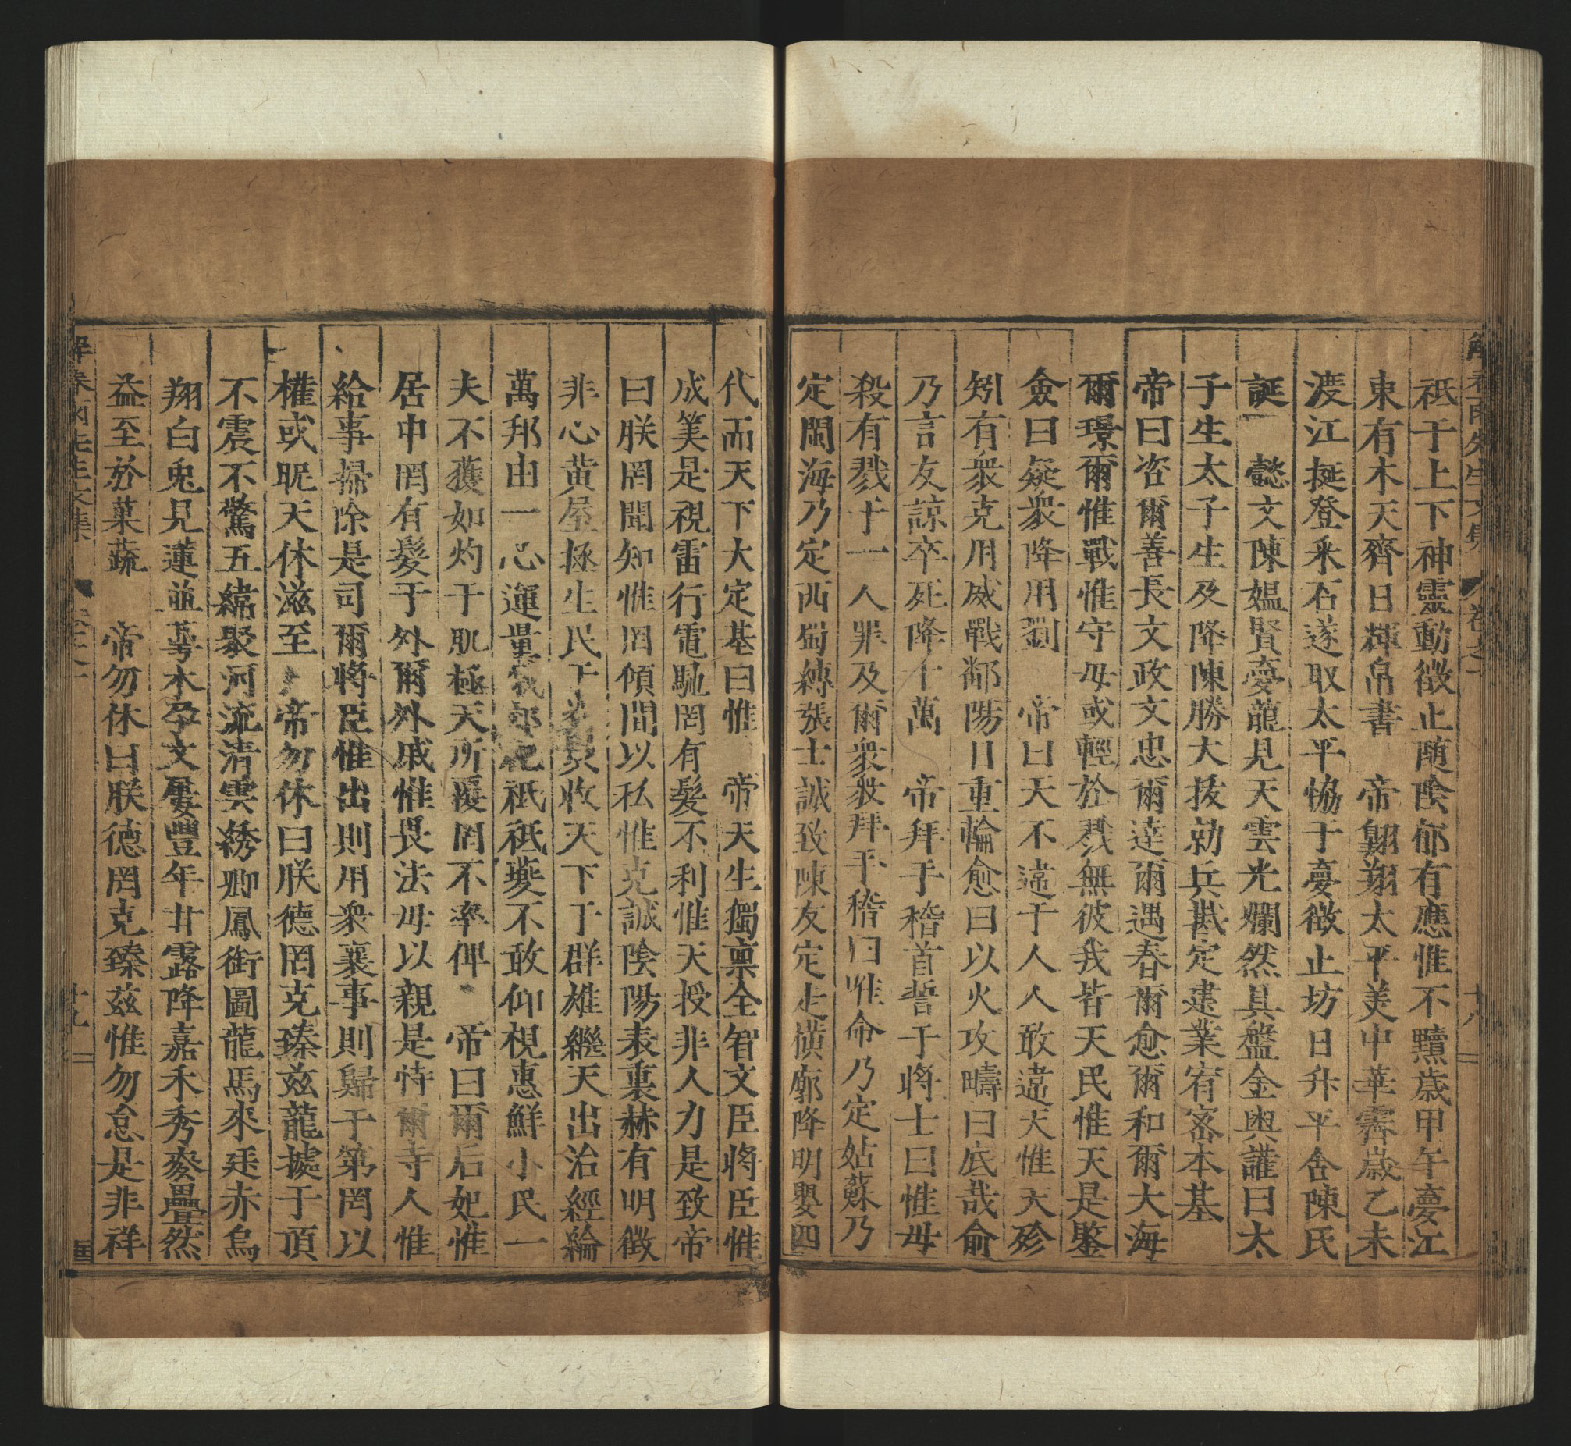 祇于上下神靈動徵止随陰郁有應惟不驥歲甲午夢江
東有木天齊日輝帛書　帝翺翔太平美中華霽歲乙未
渡江挺登采石遂取太平恊于夢徵止坊日升平舍陳氏
誕　懿文陳媼賢夢龍見天雲光爛然具盤金輿讙曰太
子生太子生及降陳勝大抜勑兵戡定建業宥容本基
帝曰咨爾善長文政文忠爾逹爾遇春爾愈爾和爾大海
爾璟爾惟戰惟守毋或輕於殺無彼我皆天民惟天是鑒
僉曰疑衆降用劉　帝曰天不遠于人人敢違天惟天殄
矧有衆克用威戰鄱陽日重輪愈曰以火攻疇曰底哉俞
乃言友諒卒死降十萬　帝拜手稽首誓于將士曰惟毋
殺有戮十一人罪及爾衆衆拜手稽曰唯命乃定姑蘇乃
定閩海乃定西蜀縛張士誠致陳友定走横廓降明娶四
代而天下大定基曰惟　帝天生獨禀全智文臣將臣惟
成筭是視雷行電馳罔有髪不利惟天授非人力是致帝
曰朕罔聞知惟罔傾間以私惟克誠陰陽表裏赫有明徵
非心黄屋拯生民于收天下于群雄繼天出治經綸
萬邦由一心運量祇祇夔夔不敢仰視惠鮮小民一
夫不獲如灼于肌極天所覆罔不率俾　帝曰爾后妃惟
居中罔有髪于外爾外戚惟畏法毋以親是恃爾寺人惟
給事掃除是司爾將臣惟出則用衆襄事則歸于第罔以
權或昵天休滋至　帝勿休曰朕德罔克臻兹龍據于頂
不震不驚五緯聚河流清雲綉卿鳳銜圖龍馬來廷赤烏
翔白兎見蓮並萼木孕文屢豐年甘露降嘉禾秀麥疊然
益至於菓蔬　帝勿休曰朕德罔克臻茲惟勿怠是非祥
解春雨先生文集
十八
十九